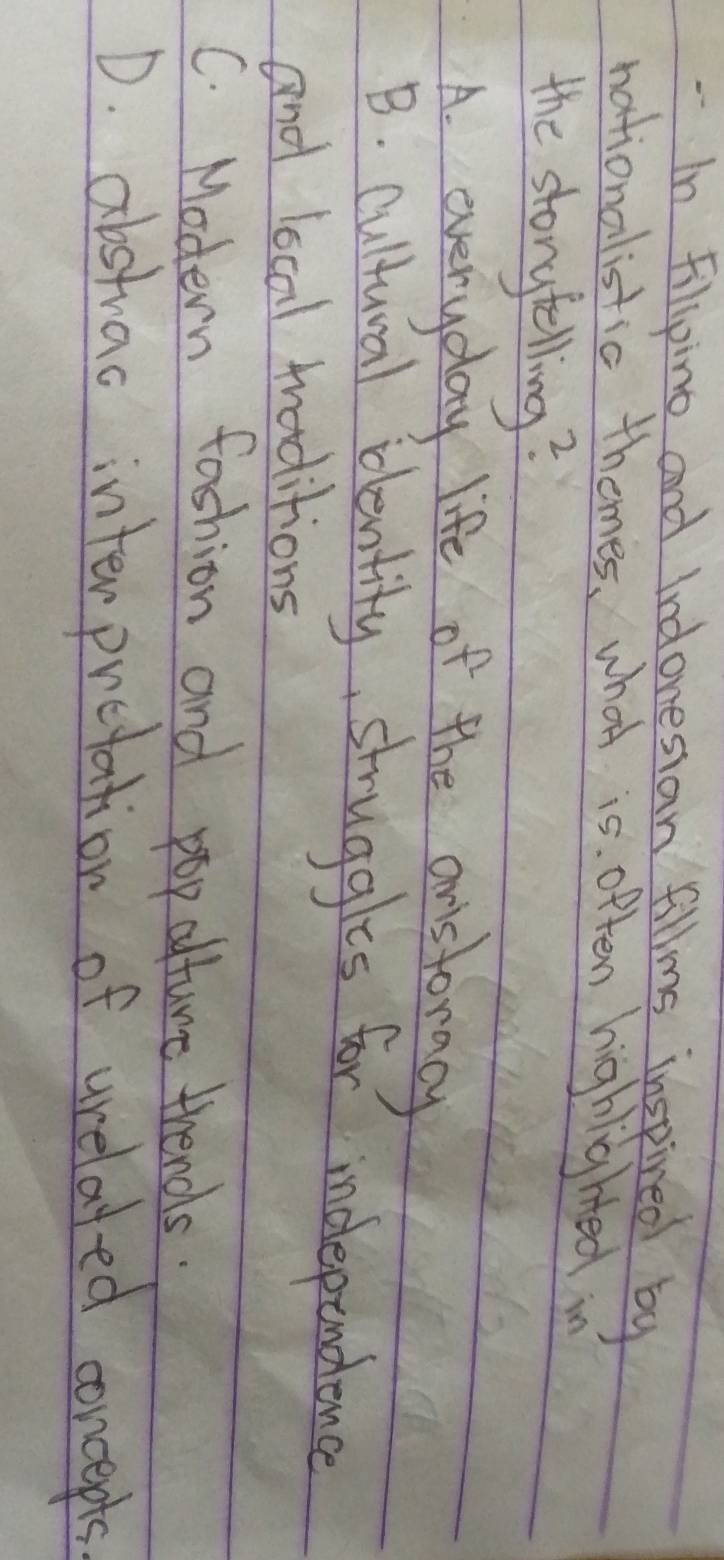 - In fillipino and Indonesian fillms inspired by
nationalistic themes, what is often highlighted in
the storytelling?
A. everyday life of the aristoracy
B. Cultural identity, struggles for independence
and local traditions
C. Modern fashion and pop alture trends.
D. abstrac interpretation of urelated concepts.